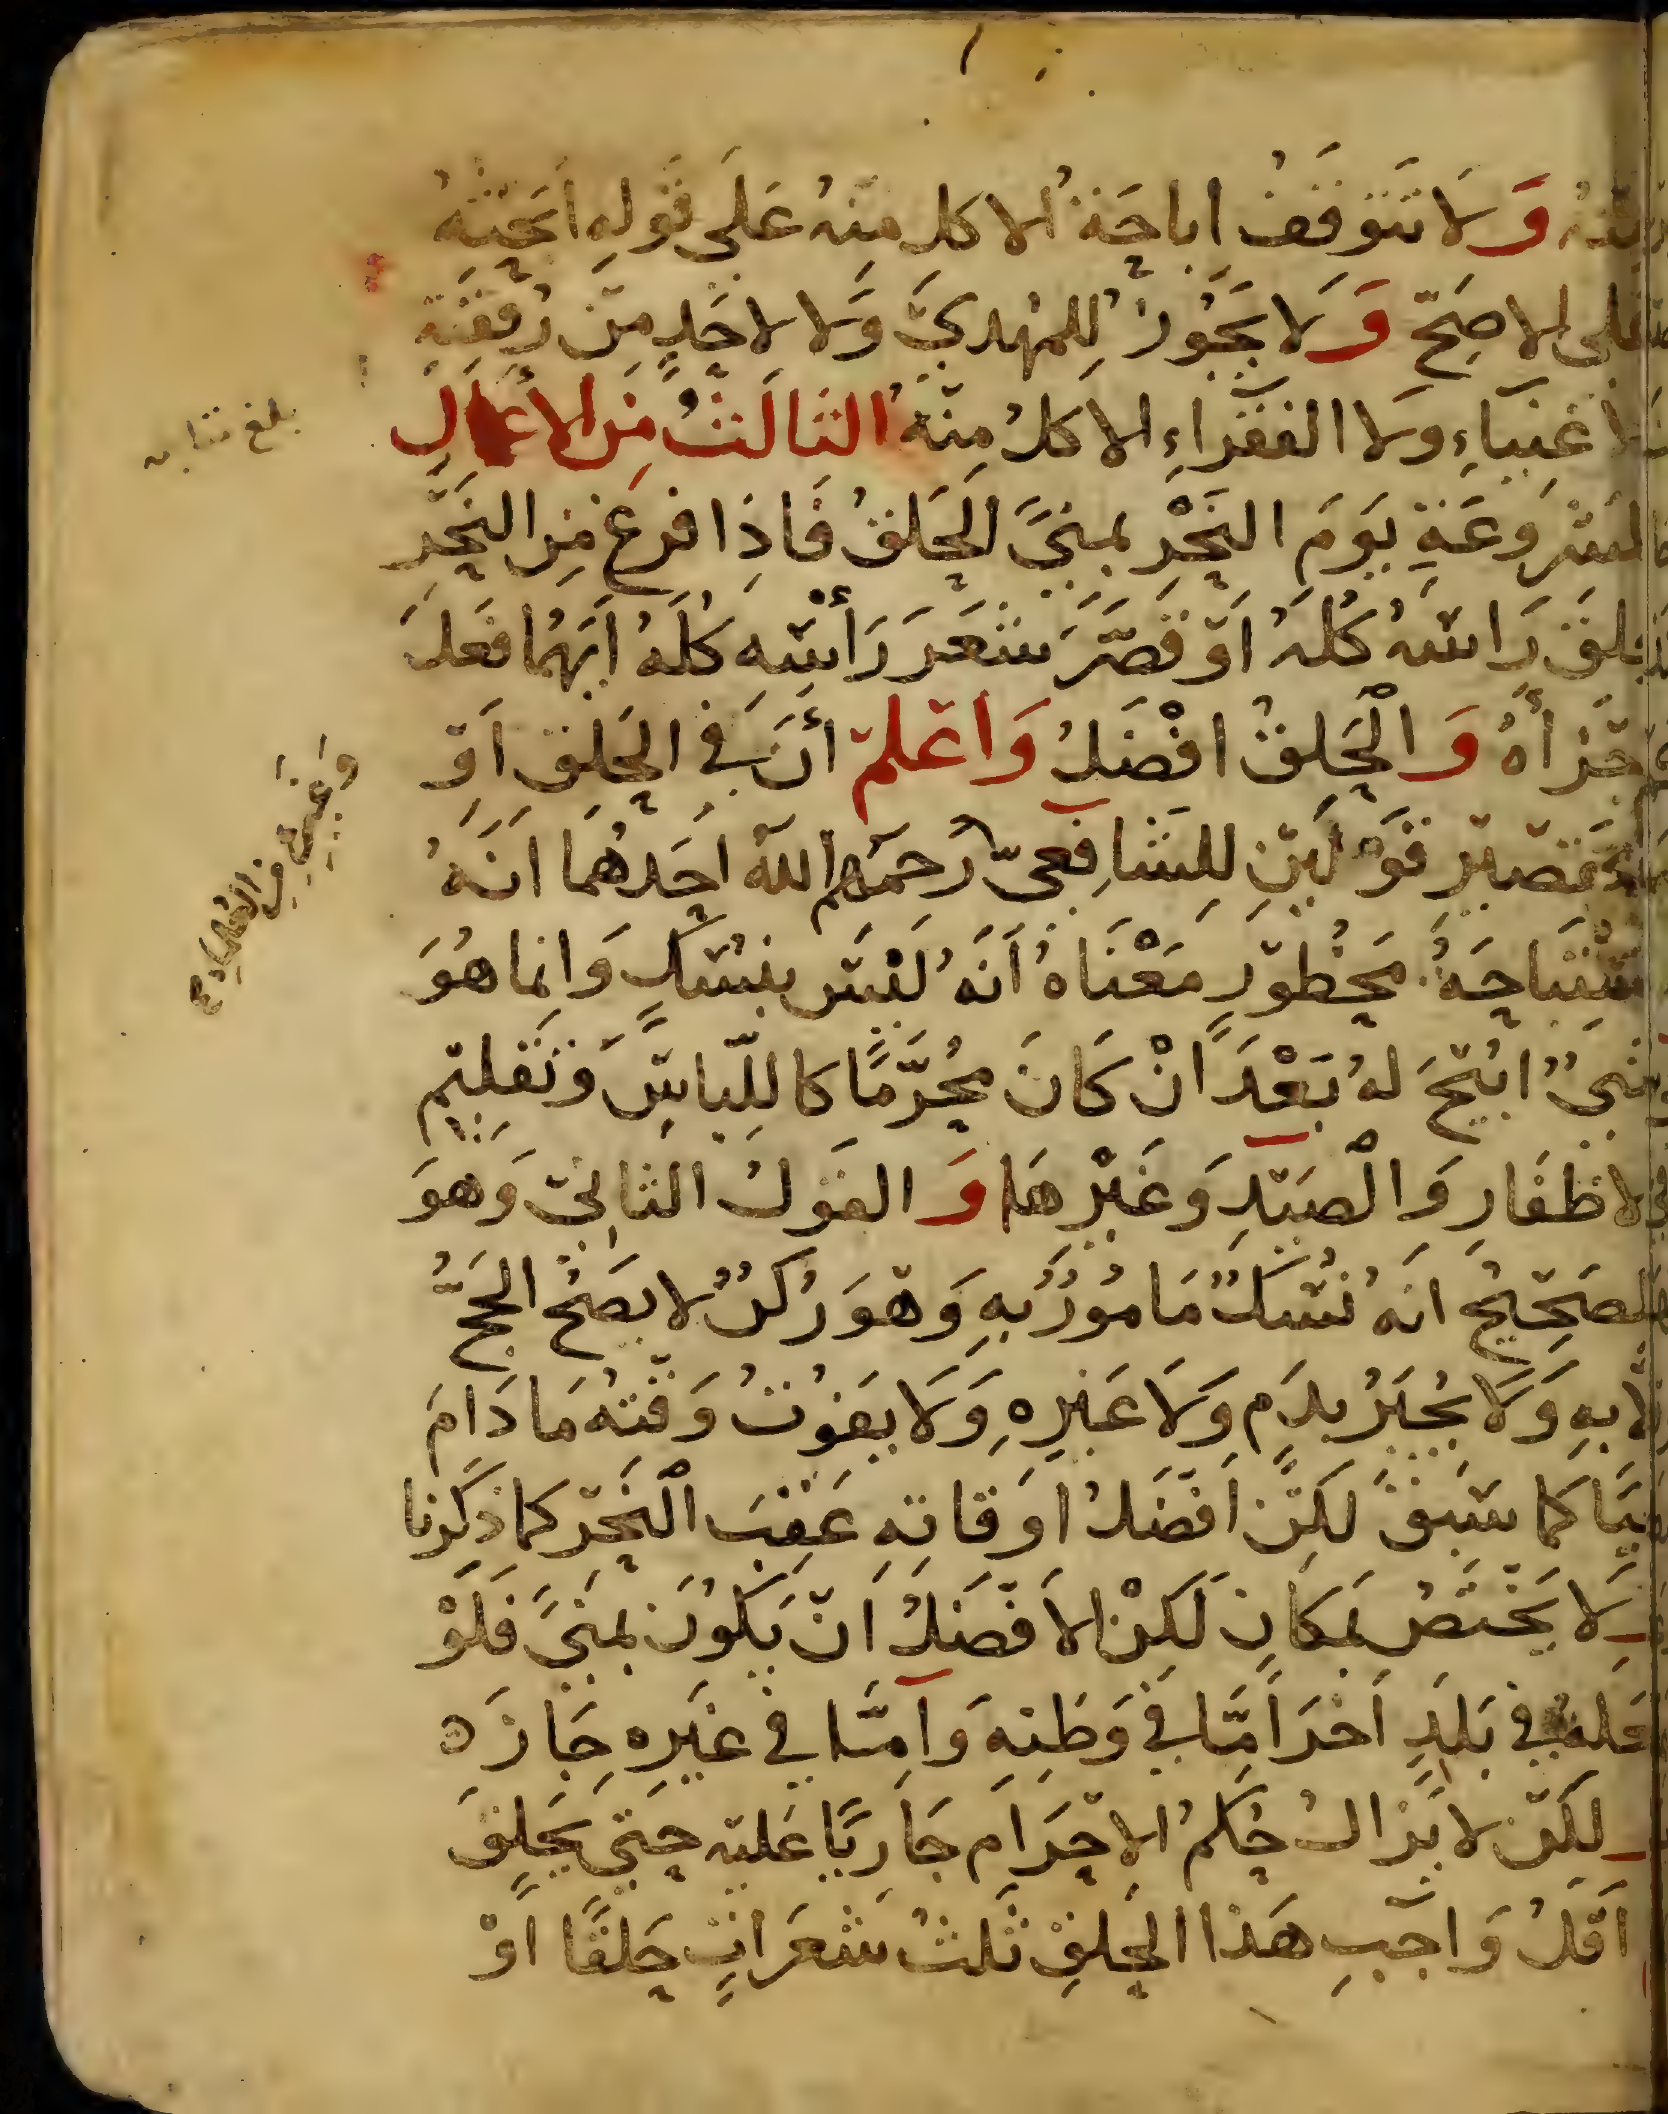 وَلَا تَتَوَقَّفُ إباحَةُ الاكل مِنْهُ عَلَى قَولِهِ أَبَحْتُهُ
على الاصَحّ وَلَا يَجُوزُ لِلمُهْدِيّ وَلا لاحَدٍ مِنْ رُفْقَتِهِ
الاغنِيَاءِ وَلا الفُقَرَاءِ الاكلُ مِنْهُ الثالثُ مِنَ الأعمَالِ
المَشْرُوعَةِ يَوْمَ النَّحْرِ بِمِنًى الحَلقُ فَاِذَا فرغ مِنَ النَّحْرِ
حلقَ رَاسَهُ كُلَّهُ اَوْ قَصَّرَ شَعَرَ رَأْسِهِ كُلَّهُ اَيّهُمَا فَعَلَ
أجْزأهُ وَالْحَلقُ افْضَلُ وَاعْلمْ أنَّ في الحَلقِ اَوِ
التقصيْرِ قَوْلَيْنِ لِلشَّافِعِيّ رَحمَهُ اللّه اَحَدهُمَا اَنَّهُ
اسْتِبَاحَةُ مَحْظُورٍ مَعْنَاهُ اَنَّهُ لَيْسَ بِنُسُكٍ وَانما هُوَ
شيءٌ ابُيْحَ لهُ بَعْدَ اَنْ كَانَ مُحُرَّمًا كاللِّبَاسِ وَتَقلِيْمِ
الاظفَارِ وَالْصَيْدِ وَغَيْرِهَا وَالقولُ الثانِيّ وَهوَ
الصَحِيْحُ انّهُ نُسُكٌ مَامُوْرٌ بِهِ وَهْوَ رُكنٌ لا يَصِحُّ الحَجُّ
الا بِهِ وَلَا يُجْبَرُ بِدَمٍ وَلَا غَيْرِهِ وَلَا يَفُوْتُ وَقْتُهُ مَا دَامَ
حَيًّا كما سَبَقَ لكِنْ اَفْضَلُ اوَقاتِهِ عَقِبَ الْنَحْرِ كما ذكَرنا
وَلا يَخْتَصُّ بمَكَانٍ لَكِنْ الاَفْضَلُ اَنْ يَكُوْنَ بمِنًى فَلَوْ
فعَلهُ في بَلَدِ اَخَرَ اَمَّا في وَطَنِهِ وَاَمَّا في غَيْرِهِ جَازَ ه
لَكِنْ لا يَزالُ حُكمُ الاِحْرَامِ جَارِيًا عَليْهِ حَتَّى يَحْلِقَ
اقَلُّ وَاجِبِ هَذا الحَلقِ ثَلثُ شَعَرَاتٍ حَلقًا اَوْ
بلغ مقابله